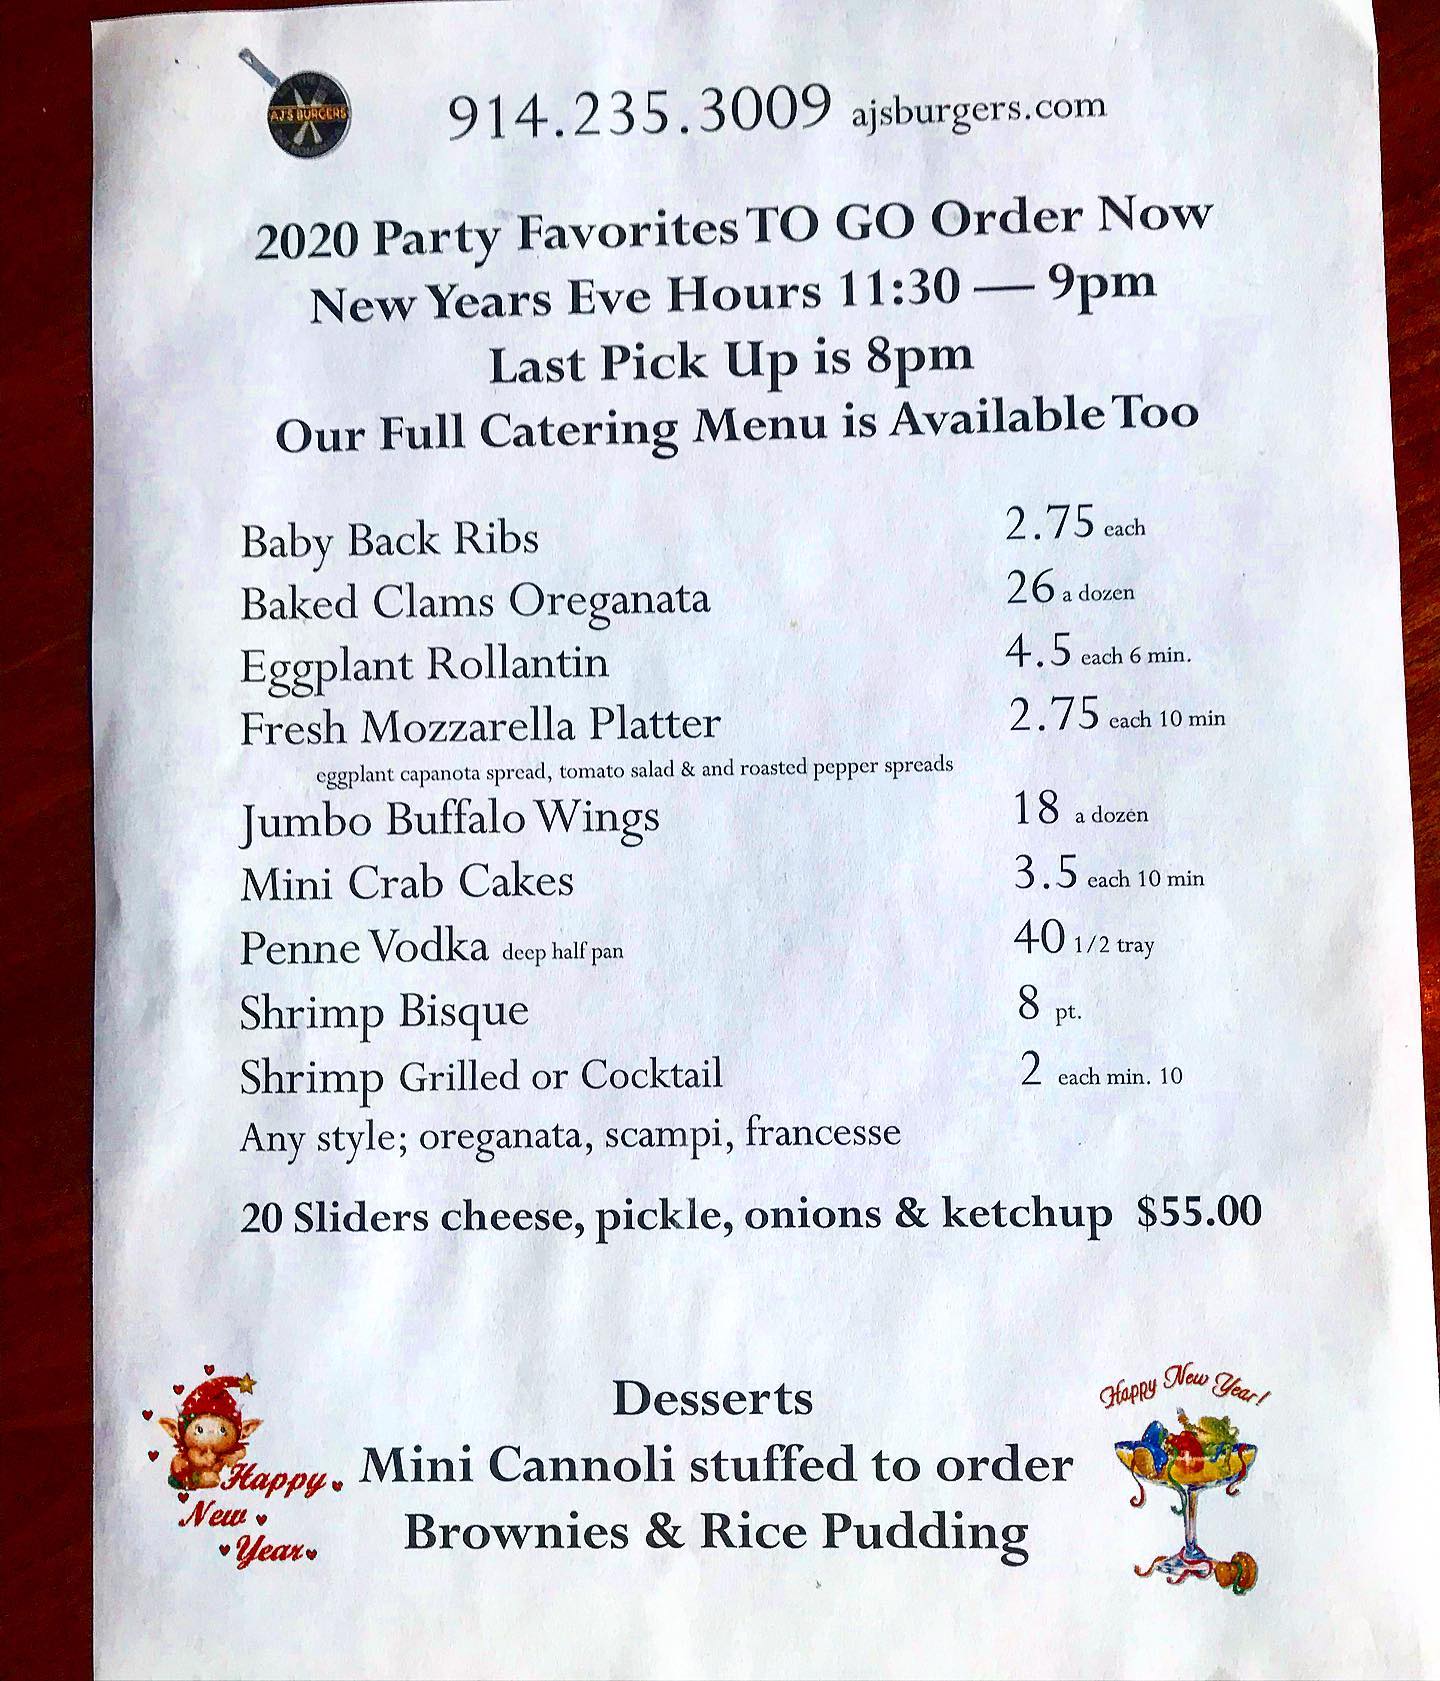 AJ'S BURGERS
914.235.3009 ajsburgers.com
2020 Party Favorites TO GO Order Now
New Years Eve Hours 11:30 — 9pm
Last Pick Up is 8pm
Our Full Catering Menu is Available Too
Baby Back Ribs 2.75 each
Baked Clams Oreganata 26 a dozen
Eggplant Rollantin 4.5 each 6 min.
Fresh Mozzarella Platter 2.75 each 10 min
eggplant capanota spread, tomato salad & and roasted pepper spreads
Jumbo Buffalo Wings 18 a dozen
Mini Crab Cakes 3.5 each 10 min
Penne Vodka deep half pan 40 1/2 tray
Shrimp Bisque 8 pt.
Shrimp Grilled or Cocktail 2 each min. 10
Any style; oreganata, scampi, francesse
20 Sliders cheese, pickle, onions & ketchup $55.00
Desserts
Mini Cannoli stuffed to order
Brownies & Rice Pudding
Happy
New
Year
Happy New Year!